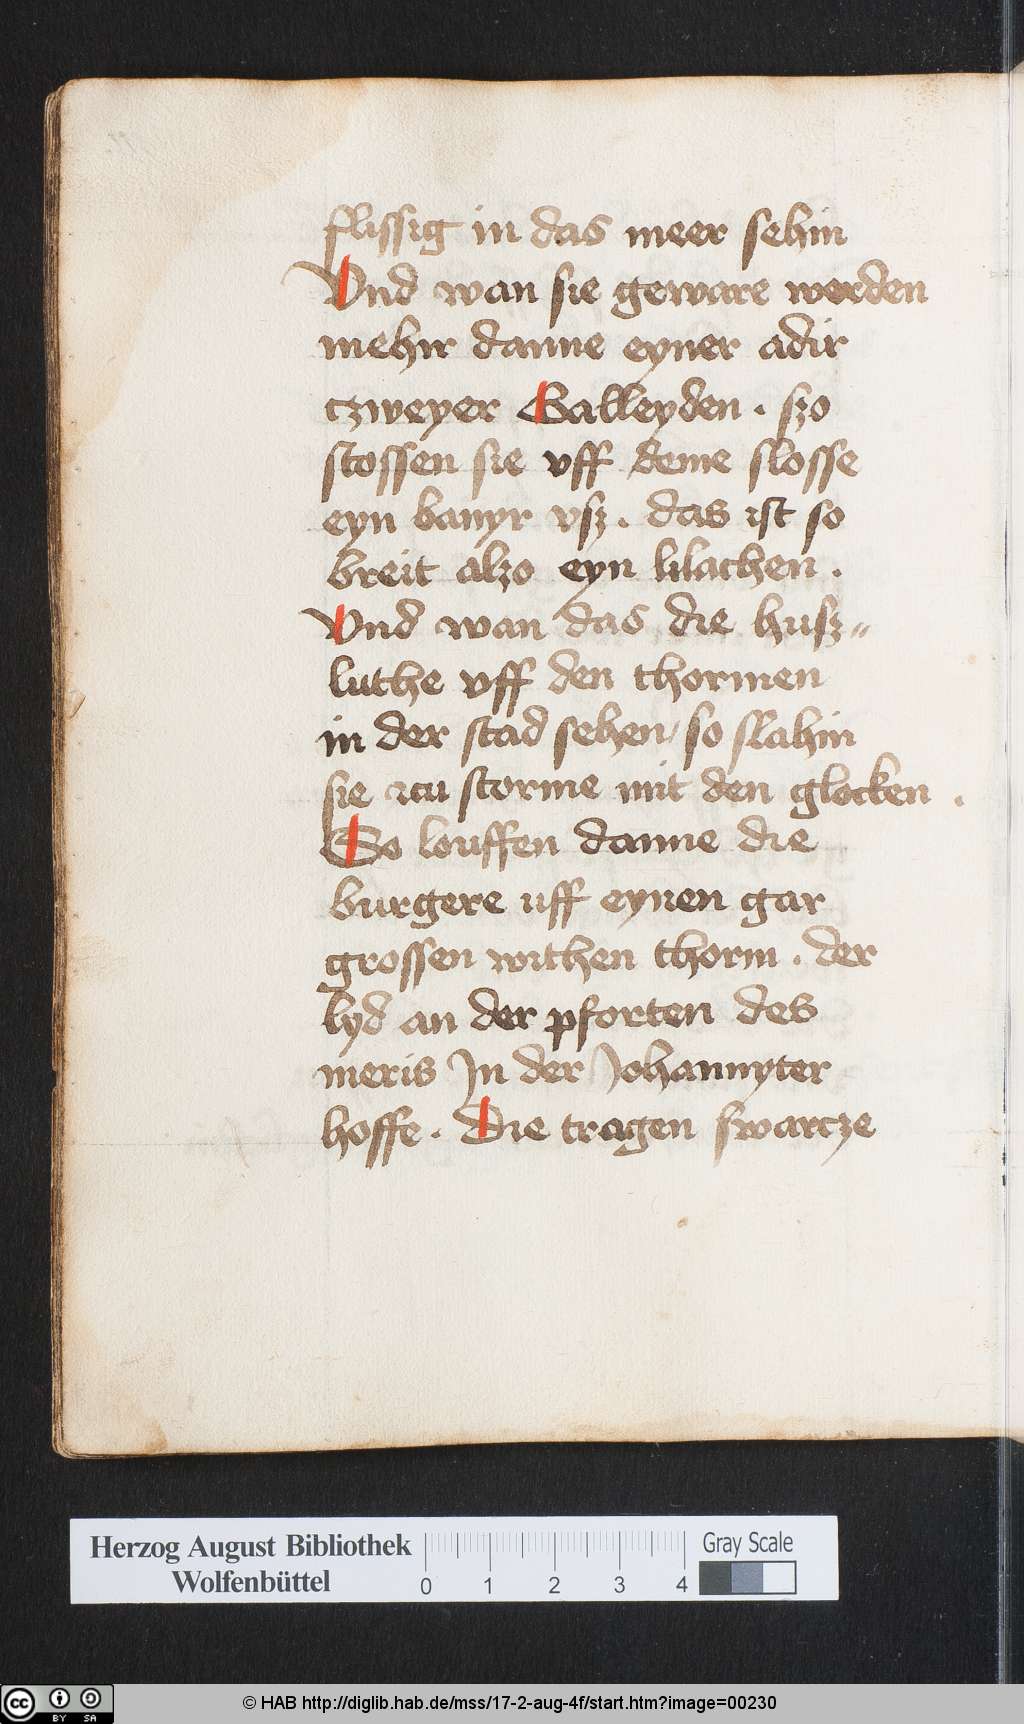 flissig in das meer sehin
Vnd wan sie geware werden
mehir danne eyner adir
czweyer Galleyden . szo
stossen sie vff deme slosse
eyn banyr vsz . das ist so
breit alzo eyn lilachen .
Vnd wan das die husz„
luthe vff den thormen
in der stad sehen, so slahin
sie zcu storme mit den glocken .
So louffen danne die
burgere uff eynen gar
grossen withen thorm . der
lyd an der pforten des
meris Jn der Johannyter
hoffe . Die tragen swarcze
Herzog August Bibliothek
Wolfenbüttel
0 1 2 3 4
Gray Scale
cc BY SA
© HAB http://diglib.hab.de/mss/17-2-aug-4f/start.htm?image=00230